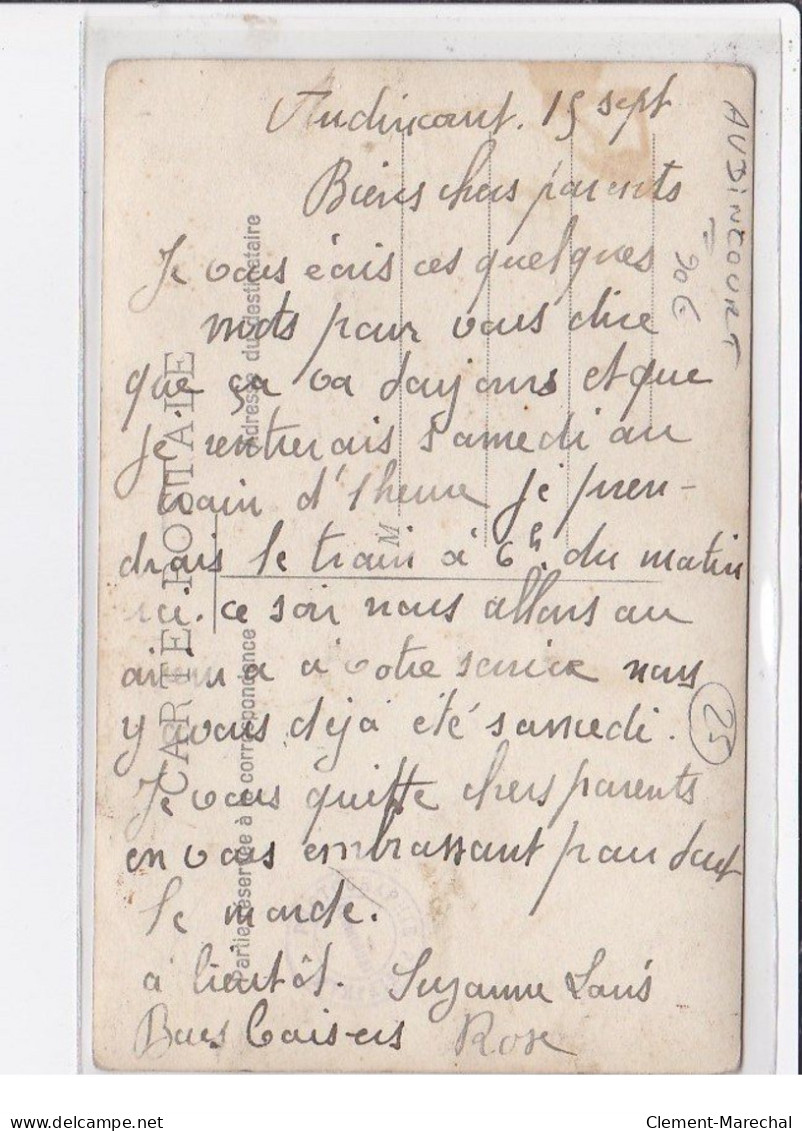 Audincourt. 15 sept
Biens chers parents
Je vous écris ces quelques
mots pour vous dire
que ça va toujours et que
je rentrerais samedi au
train d'1 heure je pren-
drais le train à 6h. du matin
ici. ce soir nous allons au
à votre service nous
y avons déjà été samedi.
Je vous quitte chers parents
en vous embrassant pour tout
le monde.
à bientôt. Suzanne Louis
Bons baisers Rose
AUDINCOURT
90€
25
CARTE POSTALE
Partie réservée à la correspondence
Adresse du destinataire
M
Clement-Marechal